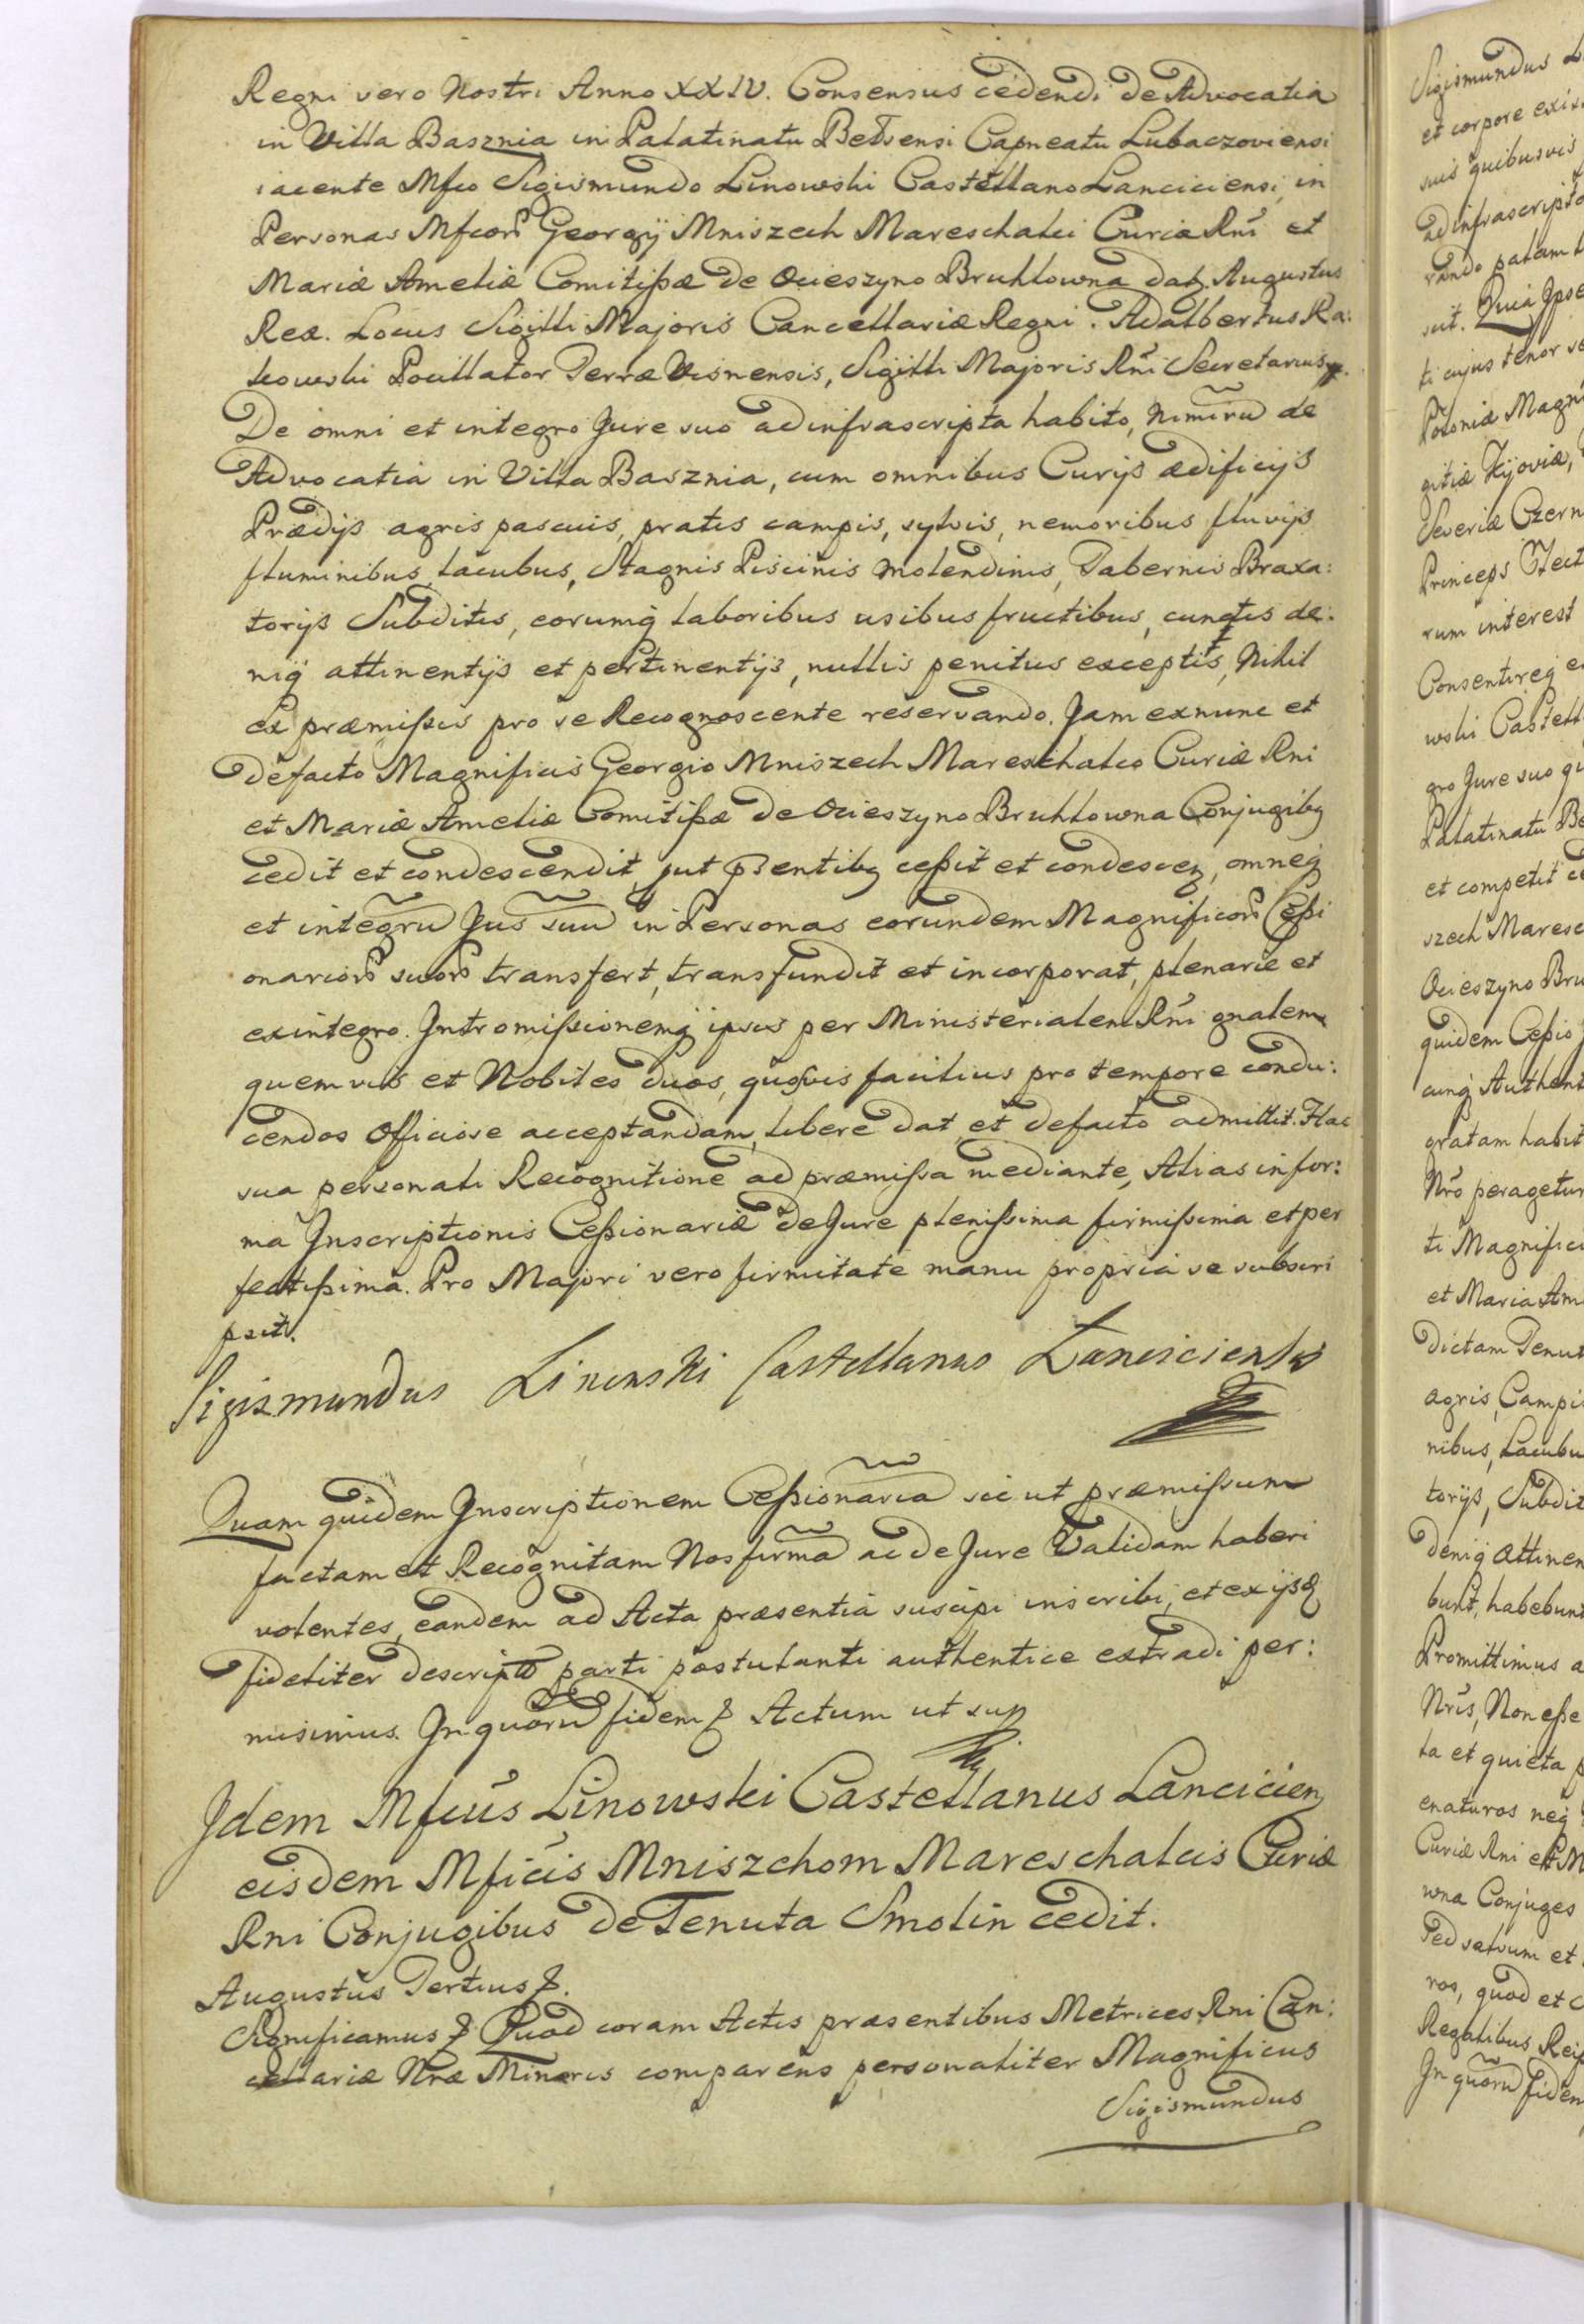 Regni vero Nostri Anno XXIV. Consensus cedendi de Advocatia
in Villa Basznia in Palatinatu Belsensi Capneatu Lubaczoviensi
iacente Mfco Sigismundo Linowski Castellano Lanciciensi, in
Personas Mfcor Georgij Mniszech Mareschalci Curiæ Rni et
Mariæ Ameliæ Comitißæ de Ocieszyno Bruhlowna datq Augustus
Rex. Locus Sigilli Majoris Cancellariæ Regni. Adalbertus Ra:
kowski Pocillator Terræ Visnensis, Sigilli Majoris Rni Secretarius
De omni et integro Jure suo ad infrascripta habito, Nimiru de
Advocatia in Villa Basznia, cum omnibus Curijs ædificijs
Prædijs agris pascuis, pratis campis, sylvis, nemoribus fluvijs
fluminibus, lacubus, Stagnis Piscinis molendinis, Tabernis Braxa:
torijs Subditis, eorumq laboribus usibus fructibus, cunctis de:
niq attinentijs et pertinentijs, nullis penitus exceptis, Nihil
ex præmißis pro se Recognoscente reservando. Jam exnunc et
defacto Magnificis Georgio Mniszech Mareschalco Curiæ Rni
et Mariæ Ameliæ Comitißæ de Ocieszyno Bruhlowna Conjugibq
cedit et condescendit, put pntibq ceßit et condescq, omneq
et integru Jus suu in Personas eorundem Magnificor Ceßi
onarior suor transfert, transfundit et incorporat, plenarie et
exintegro. Intromißionemq ipsis per Ministerialem Rni gnalem
quemvis et Nobiles duos, quosvis facilius pro tempore condu:
cendos officiose acceptandam, libere dat et defacto admittit. Hac
sua personali Recognitione ad præmißa mediante, Alias in for:
ma Inscriptionis Ceßionariæ de Jure plenißima firmißima et per
fectißima. Pro Majori vero firmitate manu propria se subscri
psit.
Sigismundus Linowski Castellanus Lanciciensis
Quam quidem Inscriptionem Ceßionaria sic ut præmißum
factam et Recognitam Nos firma ac de Jure Validam haberi
volentes, eandem ad Acta præsentia suscipi inscribi, et ex ijsq
fideliter descripto parti postulanti authentice extradi per:
misimus. In quoru fidem & Actum ut sup
Idem Mfcus Linowski Castellanus Lancicien
eisdem Mficis Mniszchom Mareschalcis Curiæ
Rni Conjugibus de Tenuta Smolin cedit.
Augustus Tertius &.
Significamus & Quod coram Actis præsentibus Metrices Rni Can:
cellariæ Nræ Minoris comparens personaliter Magnificus
Sigismundus
Sigismundus
et corpore
suis quibusvis
ad infrascripto
rando palam
uit. Quia Ipse
ti cujus tenor
Poloniæ Magn
gitiæ Kijoviæ,
Severiæ Czern
Princeps Elect
rum interest
Consentireq
wski Castell
gro Jure suo
Palatinatu Be
et competit
szech Maresc
Ocieszyno Bru
quidem Ceßio
cunq Authent
gratam habit
Nro peragetur
ti Magnifici
et Maria Am
dictam Tenut
agris, Campi
nibus, Lacubu
torijs, Subdit
deniq attinen
bunt, habebunt
Promittimus a
Nris, Non eße
ta et quieta
enaturos neq
Curiæ Rni et M
wna Conjuges
Sed salvum et
ros, quod et
Regalibus Reip
In quoru fidem